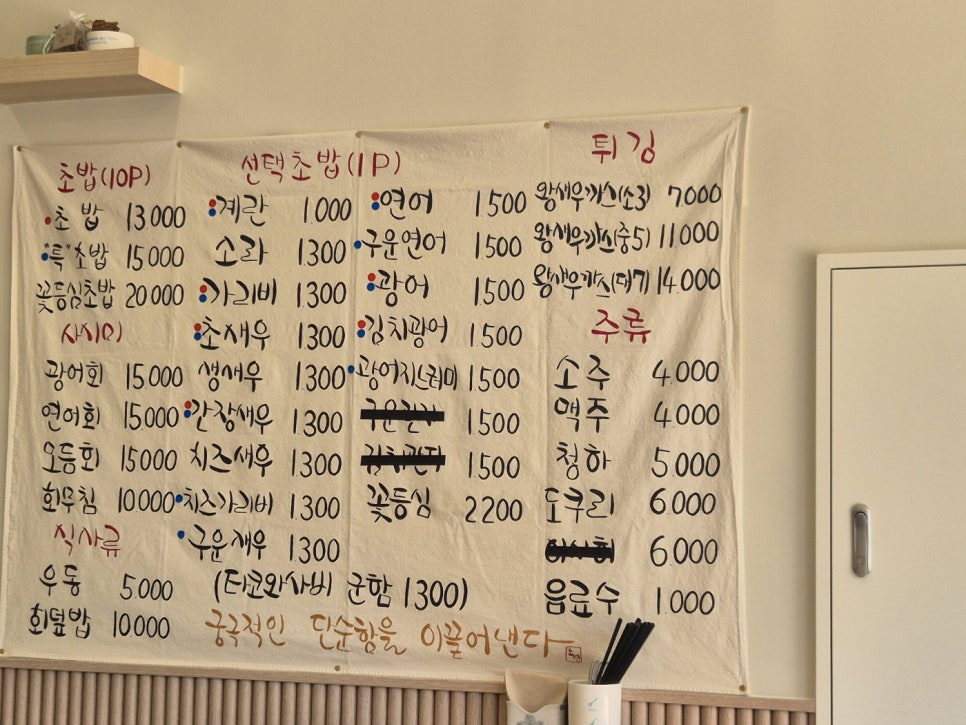 초밥(10P)
초밥 13000
"특"초밥 15000
꽃등심초밥 20000
사시미
광어회 15000
연어회 15000
모듬회 15000
회무침 10000
식사류
우동 5.000
회덮밥 10000
선택초밥(1P)
계란 1000
소라 1300
가리비 1300
초새우 1300
생새우 1300
간장새우 1300
치즈새우 1300
치즈가리비 1300
구운새우 1300
(타코와사비 군함 1300)
연어 1500
구운연어 1500
광어 1500
김치광어 1500
광어지느러미 1500
1500
1500
꽃등심 2200
튀김
왕새우까스(소3) 7.000
왕새우까스(중5) 11000
왕새우까스(대7) 14.000
주류
소주 4.000
맥주 4.000
청하 5.000
도쿠리 6.000
6.000
음료수 1.000
궁극적인 단순함을 이끌어낸다